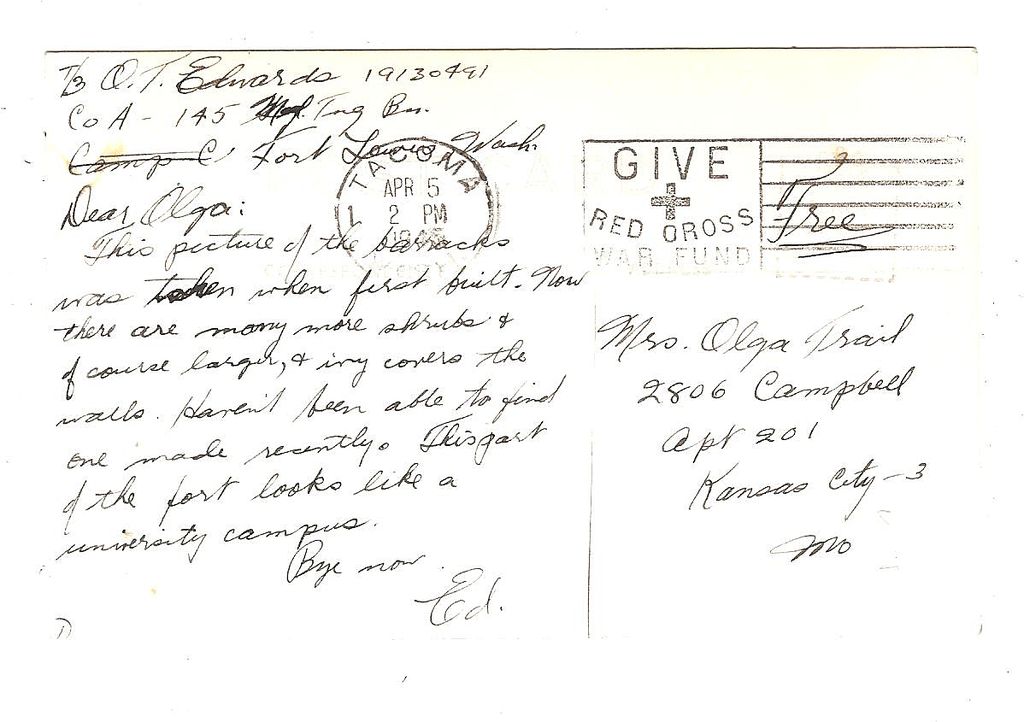 T/3 O. T. Edwards 19130491
Co A - 145 Tng Bn.
Camp C Fort Lewis, Wash.
TACOMA
APR 5
2 PM
1
GIVE
RED CROSS
WAR FUND
Free
Dear Olga:
This picture of the barracks
was taken when first built. Now
there are many more shrubs &
of course larger, & ivy covers the
walls. Haven't been able to find
one made recently. This part
of the fort looks like a
university campus.
Bye now.
Ed.
Mrs. Olga Trail
2806 Campbell
Apt 201
Kansas City-3
Mo